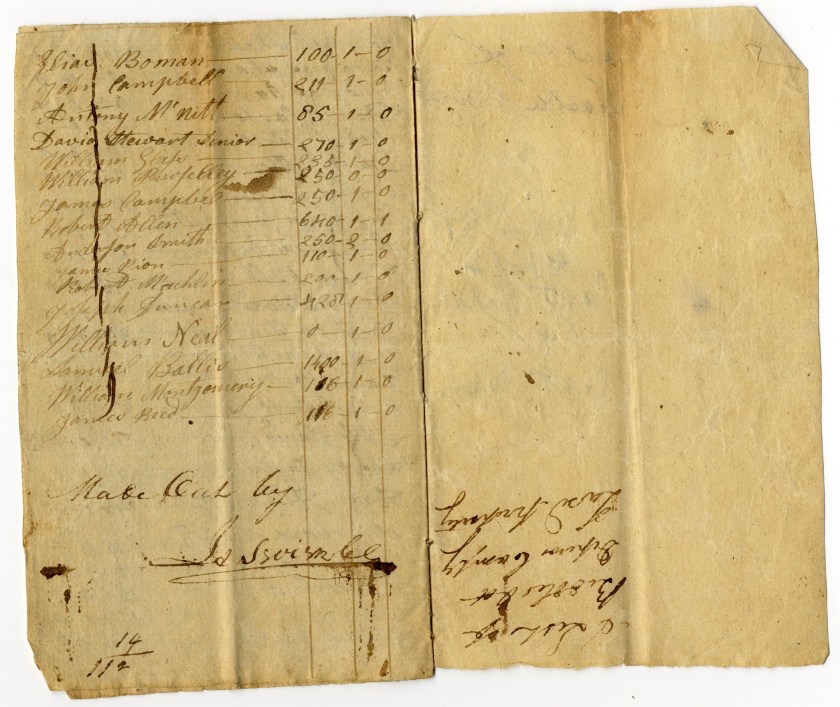 Elias Boman — 100 - 1 - 0
John Campbell — 211 - 1 - 0
Antony McNitt — 85 - 1 - 0
David Stewart Senior — 270 - 1 - 0
William — 235 - 1 - 0
William — 250 - 0 - 0
James Campbell — 250 - 1 - 0
Robert Allen — 640 - 1 - 1
Anderson Smith — 250 - 2 - 0
James Rion — 110 - 1 - 0
Robert — 200 - 1 - 0
Joseph Duncan — 428 - 1 - 0
William Neal — 0 - 1 - 0
Samuel — 1400 - 1 - 0
William Montgomery — 116 - 1 - 0
James Reed — 116 - 1 - 0
Made Out by
14
112
A List of
Taxd Property